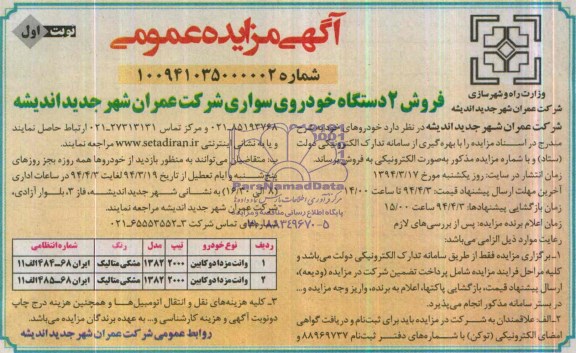 نوبت اول
آگهی مزایده عمومی
شماره ۱۰۰۹۴۱۰۳۵۰۰۰۰۰۲
وزارت راه و شهرسازی
شرکت عمران شهر جدید اندیشه
فروش ۲ دستگاه خودروی سواری شرکت عمران شهر جدید اندیشه
شرکت عمران شهر جدید اندیشه در نظر دارد خودروهای
مندرج در اسناد مزایده را با بهره‌گیری از سامانه تدارک الکترونیکی دولت
(ستاد) و با شماره مزایده مذکور به‌صورت الکترونیکی به فروش برساند.
زمان انتشار در سایت: روز یکشنبه مورخ ۱۳۹۴/۳/۱۷
آخرین مهلت ارسال پیشنهاد قیمت: ۹۴/۴/۳ ساعت ۱۴/۰۰
زمان بازگشایی پیشنهادها: ۹۴/۴/۳ ساعت ۱۵/۰۰
زمان اعلام برنده مزایده: پس از بررسی‌های لازم
رعایت موارد ذیل الزامی می‌باشد:
۱ـ برگزاری مزایده فقط از طریق سامانه تدارک الکترونیکی دولت می‌باشد و
کلیه مراحل فرایند مزایده شامل پرداخت تضمین شرکت در مزایده (ودیعه)،
ارسال پیشنهاد قیمت، بازگشایی پاکتها، اعلام به برنده، واریز وجه مزایده و...
در بستر سامانه مذکور انجام می‌پذیرد.
۲ـ الف: علاقمندان به شرکت در مزایده باید برای ثبت‌نام و دریافت گواهی
امضای الکترونیکی (توکن) با شماره‌های دفتر ثبت‌نام ۸۸۹۶۹۷۳۷ و
۰۲۱-۸۵۱۹۳۷۶۸ و مرکز تماس ۰۲۱-۲۷۳۱۳۱۳۱ ارتباط حاصل نمایند
و یا به نشانی اینترنتی www.setadiran.ir مراجعه نمایند.
ب: متقاضیان می‌توانند به منظور بازدید از خودروها همه روزه بجز روزهای
پنج‌شنبه و ایام تعطیل از تاریخ ۹۴/۳/۱۹ لغایت ۹۴/۴/۳ در ساعات اداری
(۸ الی ۱۶) به نشانی شهر جدید اندیشه، فاز ۳، بلوار آزادی،
شرکت عمران شهر جدید اندیشه مراجعه نمایند.
شماره‌های تماس شرکت ۳-۶۵۵۵۳۵۵۲-۰۲۱
ردیف نوع خودرو تیپ مدل رنگ شماره انتظامی
۱ وانت مزدا دوکابین ۲۰۰۰ ۱۳۸۲ مشکی متالیک ایران ۶۸-۴۸۴الف۱۱
۲ وانت مزدا دوکابین ۲۰۰۰ ۱۳۸۲ مشکی متالیک ایران ۶۸-۴۸۵الف۱۱
۳ـ کلیه هزینه‌های نقل و انتقال اتومبیل‌ها و همچنین هزینه درج چاپ
دونوبت آگهی و هزینه کارشناسی و... به عهده برندگان مزایده می‌باشد.
روابط عمومی شرکت عمران شهر جدید اندیشه
ParsNamadData
پایگاه اطلاع رسانی مناقصه و مزایده
۰۲۱-۸۸۳۴۹۶۷۰-۵